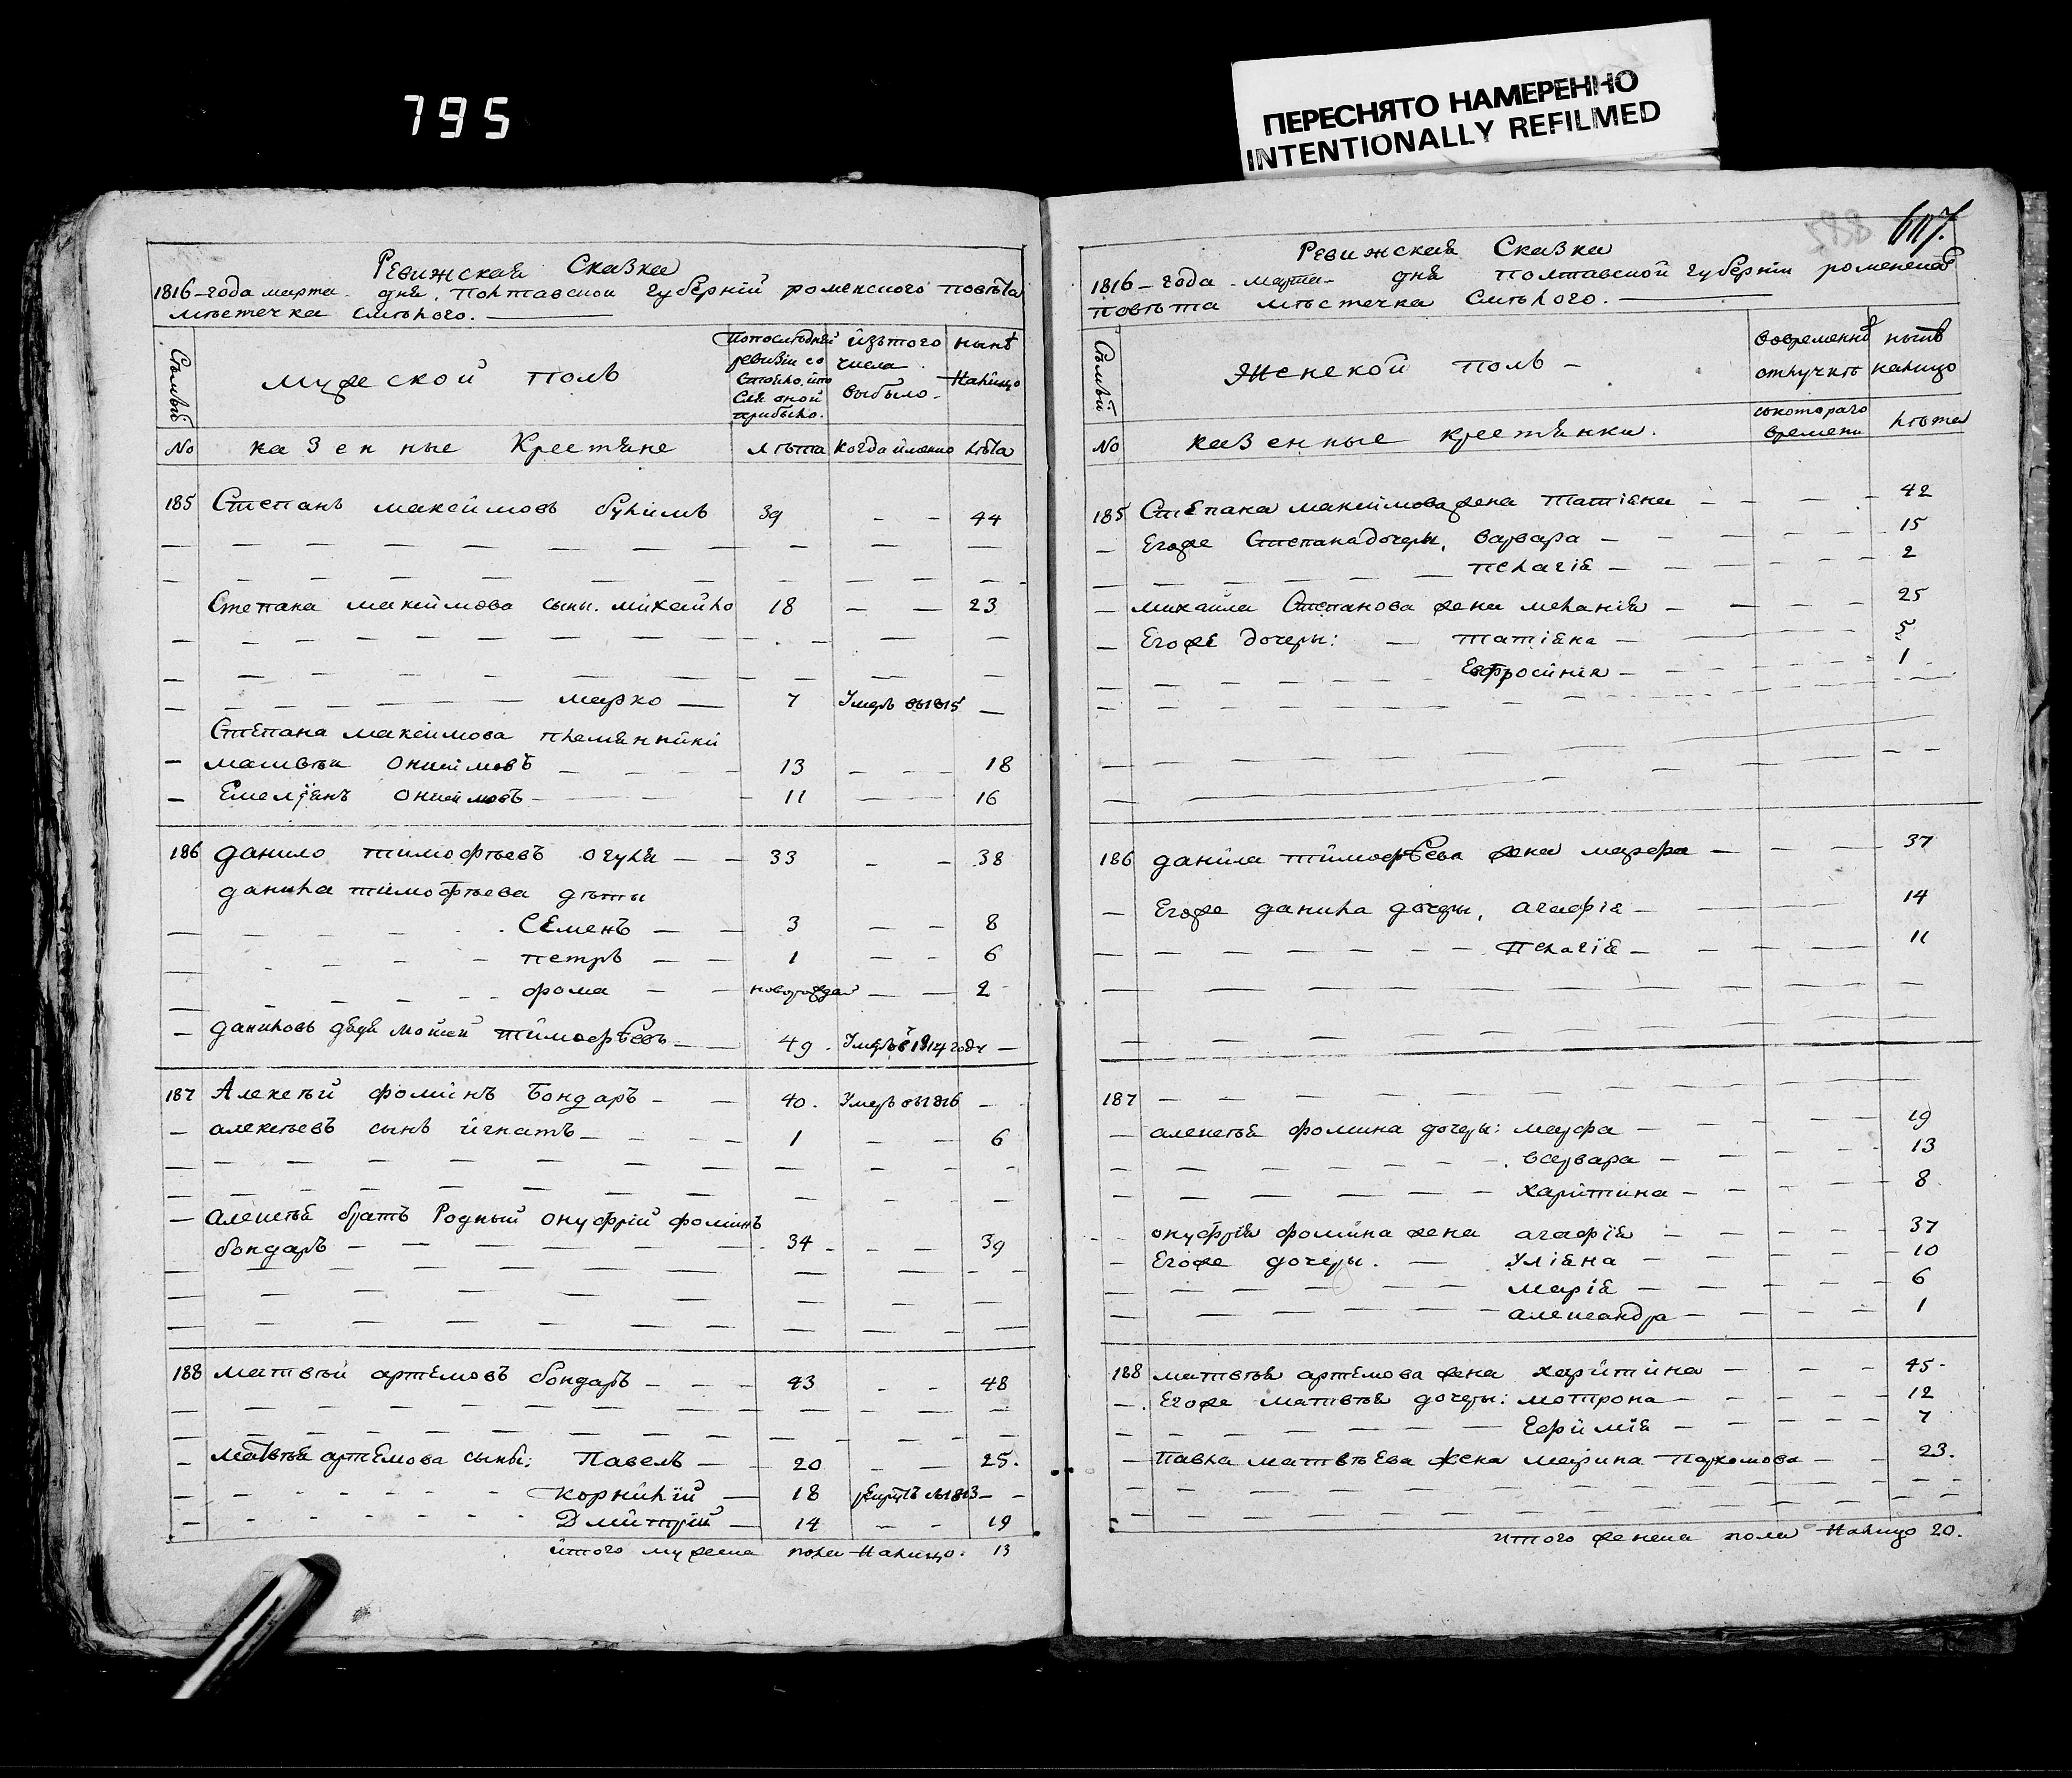 795
ПЕРЕСНЯТО НАМЕРЕННО
INTENTIONALLY REFILMED
Ревижская Сказка
1816-года марта дня, Полтавской губерніи роменского повѣта
мѣстечка Смѣлого.
Сѣмьи
мужеской полъ
Попоследней ревизіи со стояло, или после оной прибыло.
изътого числа выбыло.
нынѣ налицо
№ казенные Крестяне лѣта когда имянно лѣта
185 Степанъ максимовъ бузимъ 39 - - 44
Степана максимова сыны. михайло 18 — — 23
марко — 7 Умеръ въ1815 —
Степана максимова племянники
матвѣи онисимовъ 13 - - - 18
Емельянъ онисимовъ 11 — 16
186 данило тимофѣевъ огуля — — 33 - - 38
данила тимофѣева дѣти
Семенъ — — 3 — — 8
петръ — — 1 — — 6
фома — — новорожден — — 2
даниловъ дядя мойсей тимофѣевъ 49. Умеръ в 1814 году —
187 Алексѣй фоминъ Бондаръ - — 40. Умеръ въ1816 —
алексѣевъ сынъ игнатъ 1 - - 6
алексѣя братъ Родный онуфрій фоминъ
бондаръ 34 - - - 39
188 матвѣй артемовъ бондаръ 43 - - 48
матвѣя артемова сыны: Павелъ — 20 - — 25.
корнилій — 18 1813 — -
Дмитрій — 14 — - 19
итого мужеска пола налицо. 13
607.
Ревижская Сказка
1816-года марта- дня полтавской губерніи роменского
повѣта мѣстечка Смѣлого.
Сѣмьи
Женской полъ -
вовременной отлучкѣ
нынѣ налицо
№ казенные крестянки.
скотораго времени
лѣта
185 Степана максимова жена татіяна 42
Егоже Степана дочеры, варвара 15
пелагія 2
михаила Степанова жена меланія 25
Егоже дочеры: татіяна 5
Евфросинія 1
186 данила тимофѣева жена марфа 37
Егоже данила дочеры, агафія 14
пелагія 11
187
алексѣя фомина дочеры: марфа 19
варвара 13
харитина 8
онуфрія фомина жена агафія 37
Егоже дочеры. уліяна 10
марія 6
александра 1
188 матвѣя артемова жена харитина 45-
Егоже матвѣя дочеры: мотрона 12
Ефимія 7
павла матвѣева жена марина пархомова 23.
итого женска пола налицо 20.